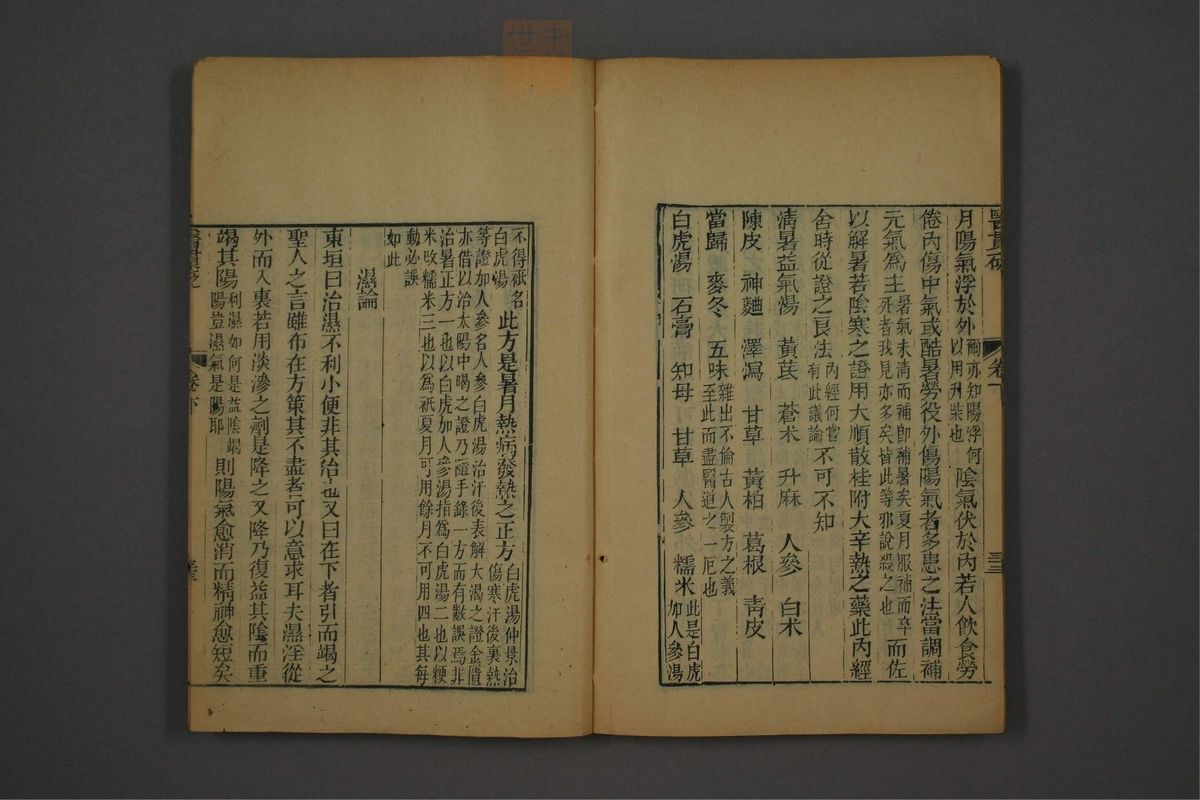 醫貫砭 卷下 三三
月陽氣浮於外爾亦知陽浮何以用升柴也陰氣伏於內若人飲食勞
倦內傷中氣或酷暑勞役外傷陽氣者多患之法當調補
元氣爲主暑氣未清而補卽補暑矣夏月服補而卒死者我見亦多矣皆此等邪說殺之也而佐
以解暑若陰寒之證用大順散桂附大辛熱之藥此內經
舍時從證之良法內經何嘗有此議論不可不知
清暑益氣湯 黃芪 蒼朮 升麻 人參 白朮
陳皮 神麯 澤瀉 甘草 黃柏 葛根 靑皮
當歸 麥冬 五味雜出不倫古人製方之義至此而盡醫道之一厄也
白虎湯 石膏 知母 甘草 人參 糯米此是白虎加人參湯
不得祇名白虎湯此方是暑月熱病發熱之正方白虎湯仲景治傷寒汗後裏熱
等證加人參名人參白虎湯治汗後表解大渴之證金匱
亦借以治太陽中暍之證乃隨手錄一方而有數誤焉非
治暑正方一也以白虎加人參湯指爲白虎湯二也以粳
米改糯米三也以爲祇夏月可用餘月不可用四也其每
動必誤
如此
濕論
東垣曰治濕不利小便非其治也又曰在下者引而竭之
聖人之言雖布在方策其不盡者可以意求耳夫濕淫從
外而入裏若用淡滲之劑是降之又降乃復益其陰而重
竭其陽利濕如何是益陰竭陽豈濕氣是陽耶則陽氣愈消而精神愈短矣
醫貫砭 卷下 三三